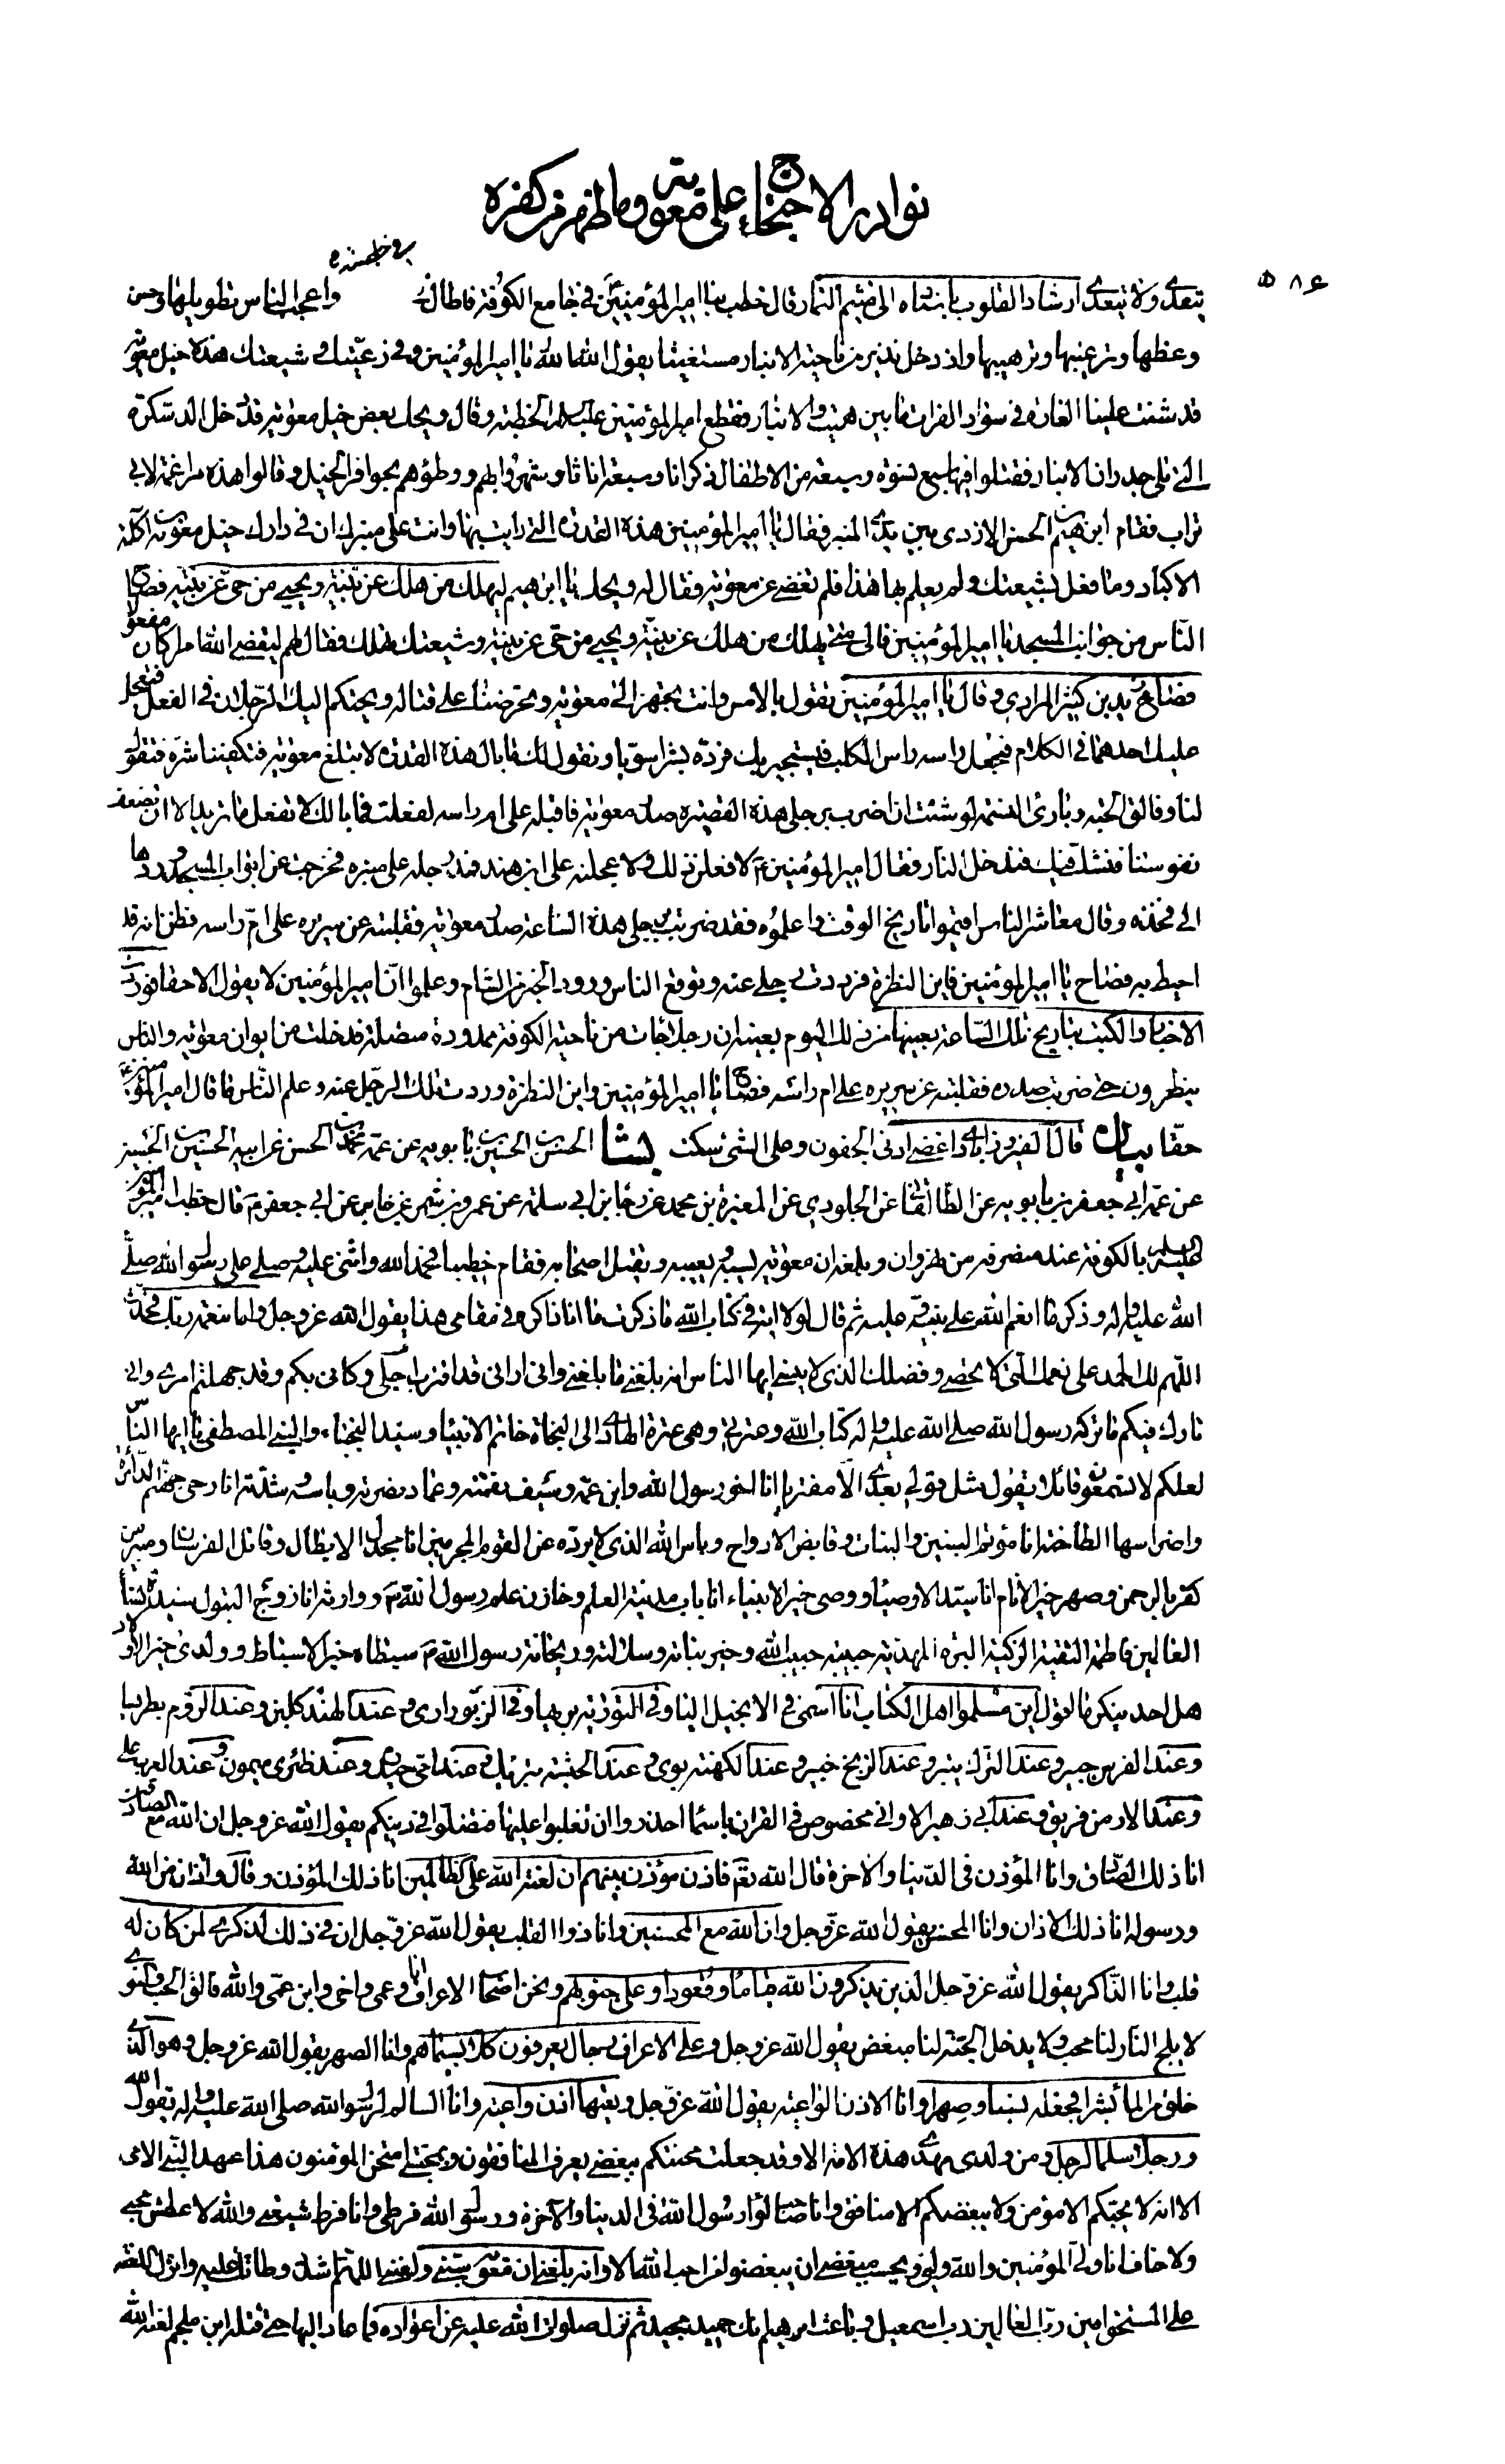 نوادر الاحتجاج على معوية وما ظهر من كفره
٥٨٤
في خطبته
يتعدى ولا يتعدى ارشاد القلوب باسناده الى ميثم التمار قال خطب بنا امير المؤمنين في جامع الكوفة فاطال واعجب الناس تطويلها وحسن
وعظها وترغيبها وترهيبها واذ دخل نذير من ناحية الانبار مستغيثا يقول الله الله يا امير المؤمنين في رعيتك وشيعتك هذه خيل معوية
قد شنت علينا الغارة في سواد الفرات ما بين هيت والانبار فقطع امير المؤمنين عليه السلام الخطبة وقال ويحك بعض خيل معوية قد دخل الدسكرة
التي تلي جدران الانبار فقتلوا فيها سبع نسوة وسبعة من الاطفال ذكرانا وسبعة اناثا وشهروا بهم ووطؤهم بحوافر الخيل وقالوا هذه مراغمة لابي
تراب فقام ابرهيم بن الحسن الازدي بين يدي المنبر فقال يا امير المؤمنين هذه القدرة التي رايت بها وانت على منبرك ان في دارك خيل معوية بن اكلة
الاكباد وما فعل بشيعتك ولم يعلم بها هذا فلم تغضي عن معوية فقال له ويحك يا ابرهيم ليهلك من هلك عن بينة ويحيى من حي عن بينة فصاح
الناس من جوانب المسجد يا امير المؤمنين فالى متى يهلك من هلك عن بينة ويحيى من حي عن بينة وشيعتك تهلك فقال لهم ليقضي الله امرا كان مفعولا
فصاح زيد بن كثير المرادي وقال يا امير المؤمنين تقول بالامس وانت تجهز الى معوية وتحرضنا على قتاله ويحتكم اليك الرجلان في الفعل فتعجل
عليك احدهما في الكلام فتجعل راسه راس الكلب فيستجير بك فترده بشرا سويا ونقول لك ما بال هذه القدرة لا تبلغ معوية فتكفينا شره فتقول
لنا وفالق الحبة وبارئ النسمة لو شئت ان اضرب برجلي هذه القصيرة صدر معوية فاقلبه على ام راسه لفعلت فما بالك لا تفعل ما تريد الا ان تضعف
نفوسنا فنشك فيك فندخل النار فقال امير المؤمنين ع لافعلن ذلك ولاعجلنه على ابن هند فمد رجله على منبره فخرجت عن ابواب المسجد وردها
الى فخذه وقال معاشر الناس اقيموا تاريخ الوقت واعلموه فقد ضربت برجلي هذه الساعة صدر معوية فقلبته عن سريره على ام راسه فظن انه قد
احيط به فصاح يا امير المؤمنين فاين النظرة فرددت رجلي عنه وتوقع الناس ورود الخبر من الشام وعلموا ان امير المؤمنين لا يقول الا حقا فوردت
الاخبار والكتب بتاريخ تلك الساعة بعينها من ذلك اليوم بعينه ان رجلا جاءت من ناحية الكوفة ممدودة متصلة فدخلت من ايوان معوية والناس
ينظرون حتى ضربت صدره فقلبته عن سريره على ام راسه فصاح يا امير المؤمنين واين النظرة وردت تلك الرجل عنه وعلم الناس ما قال امير المؤمنين ع
حقا بيان قال الفيروزابادي اغضى ادنى الجفون وعلى الشئ سكت بشا الحسن بن الحسين بن بابويه عن عمه محمد بن الحسن عن ابيه الحسن بن الحسين
عن عمه ابي جعفر بن بابويه عن الطالقاني عن الجلودي عن المغيرة بن محمد عن رجاء بن ابي سلمة عن عمرو بن شمر عن جابر عن ابي جعفر ع قال خطب امير المؤمنين
عليه السلام بالكوفة عند منصرفه من نهروان وبلغه ان معوية يسبه ويعيبه ويقتل اصحابه فقام خطيبا فحمد الله واثنى عليه وصلى على رسول الله صلى
الله عليه واله وذكر ما انعم الله على نبيه وعليه ثم قال لولا اية في كتاب الله ما ذكرت ما انا ذاكره في مقامي هذا يقول الله عز وجل واما بنعمة ربك فحدث
اللهم لك الحمد على نعمك التي لا تحصى وفضلك الذي لا ينسى ايها الناس انه بلغني ما بلغني واني اراني قد اقترب اجلي وكاني بكم وقد جهلتم امري واني
تارك فيكم ما تركه رسول الله صلى الله عليه واله كتاب الله وعترتي وهي عترة الهادي الى النجاة خاتم الانبياء وسيد النجباء والنبي المصطفى يا ايها الناس
لعلكم لا تسمعون قائلا يقول مثل قولي بعدي الا مفتريا انا اخو رسول الله وابن عمه وسيف نقمته وعماد نصرته وباسه وشدته انا رحى جهنم الدائرة
واضراسها الطاحنة انا مؤتم البنين والبنات وقابض الارواح وباس الله الذي لا يرده عن القوم المجرمين انا مجدل الابطال وقاتل الفرسان ومبير من
كفر بالرحمن وصهر خير الانام انا سيد الاوصياء ووصي خير الانبياء انا باب مدينة العلم وخازن علم رسول الله ص ووارثه انا زوج البتول سيدة نساء
العالمين فاطمة التقية الزكية البرة المهدية حبيبة حبيب الله وخير بناته وسلالته وريحانة رسول الله ص سبطاه خير الاسباط وولدي خير الاولاد
هل احد ينكر ما اقول اين مسلموا اهل الكتاب انا اسمي في الانجيل اليا وفي التورية بريها وفي الزبور اري وعند الهند كلبن وعند الروم بطريسا
وعند الفرس جبير وعند الترك تبير وعند الزنج خبير وعند الكهنة بوي وعند الحبشة بتريك وعند امي حيدرة وعند ظئري ميمون وعند العرب علي
وعند الارمن فريق وعند ابي زهير الا واني مخصوص في القران باسماء احذروا ان تغلبوا عليها فتضلوا في دينكم يقول الله عز وجل ان الله مع الصادقين
انا ذلك الصادق وانا المؤذن في الدنيا والاخرة قال الله تع فاذن مؤذن بينهم ان لعنة الله على الظالمين انا ذلك المؤذن وقال واذان من الله
ورسوله انا ذلك الاذان وانا المحسن يقول الله عز وجل وان الله مع المحسنين وانا ذوا القلب يقول الله عز وجل ان في ذلك لذكرى لمن كان له
قلب وانا الذاكر يقول الله عز وجل الذين يذكرون الله قياما وقعودا وعلى جنوبهم ونحن اصحاب الاعراف انا وعمي واخي وابن عمي والله فالق الحب والنوى
لا يلج النار لنا محب ولا يدخل الجنة لنا مبغض يقول الله عز وجل وعلى الاعراف رجال يعرفون كلا بسيماهم وانا الصهر يقول الله عز وجل وهو الذي
خلق من الماء بشرا فجعله نسبا وصهرا وانا الاذن الواعية يقول الله عز وجل وتعيها اذن واعية وانا السالم لرسول الله صلى الله عليه واله يقول الله
ورجلا سلما لرجل ومن ولدي مهدي هذه الامة الا وقد جعلت محنتكم ببغضي يعرف المنافقون وبمحبتي امتحن المؤمنون هذا عهد النبي الامي
الا انه لا يحبكم الا مؤمن ولا يبغضكم الا منافق وانا صاحب لواء رسول الله في الدنيا والآخرة ورسول الله فرطي وانا فرط شيعتي والله لا عطش محبي
ولا خاف انا ولي المؤمنين والله وليي يحسب مبغضي ان يبغضوا من احب الله الا وانه بلغني ان معوية سبني ولعنني اللهم اشدد وطاتك عليه وانزل اللعنة
على المستحق امين رب العالمين رب اسمعيل وباعث ابرهيم انك حميد مجيد ثم نزل صلوات الله عليه عن اعواده فما عاد اليها حتى قتله ابن ملجم لعنه الله